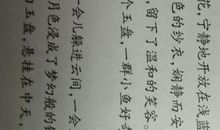 花，宁静地开放在浅蓝
色的纱衣，娴静而安
，留下了温和的笑容。
个玉盘，一群小鱼好
一会儿躲进云间，一会
月色浸成了梦幻般的
，悬挂在中天，